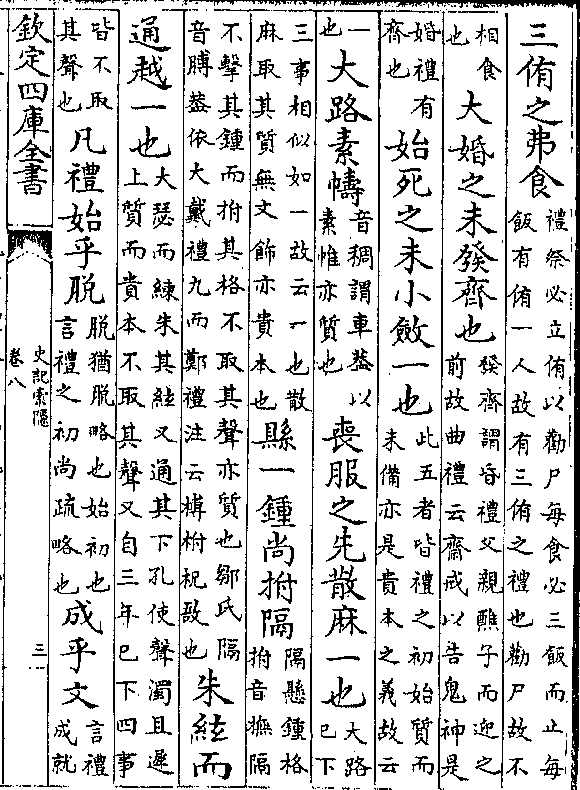 三侑之弗食禮祭必立侑以勸尸每食必三飯而止每飯有侑一人故有三侑之禮也勸尸故不
相食也大婚之未發齊也發齊謂昏禮父親醮子而迎之前故曲禮云齋戒以告鬼神是
婚禮有齊也始死之未小斂一也此五者皆禮之初始質而未備亦是貴本之義故云
一也大路素幬音稠謂車蓋以素帷亦質也喪服之先散麻一也大路已下
三事相似如一故云一也散麻取其質無文飾亦貴本也縣一鍾尚拊隔隔懸鍾格拊音撫隔
不擊其鍾而拊其格不取其聲亦質也鄒氏隔音膊蓋依大戴禮九而鄭禮注云搏拊柷敔也朱絃而
通越一也大瑟而練朱其絃又通其下孔使聲濁且遲上質而貴本不取其聲又自三年已下四事
皆不取其聲也凡禮始乎脱脱猶脱略也始初也言禮之初尚疏略也成乎文言禮成就
欽定四庫全書
史記索隱
卷八
三